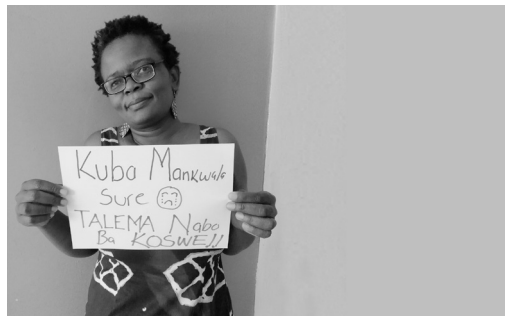 Kuba Mankwala
Sure
TALEMA Nabo
Ba KOSWE!!